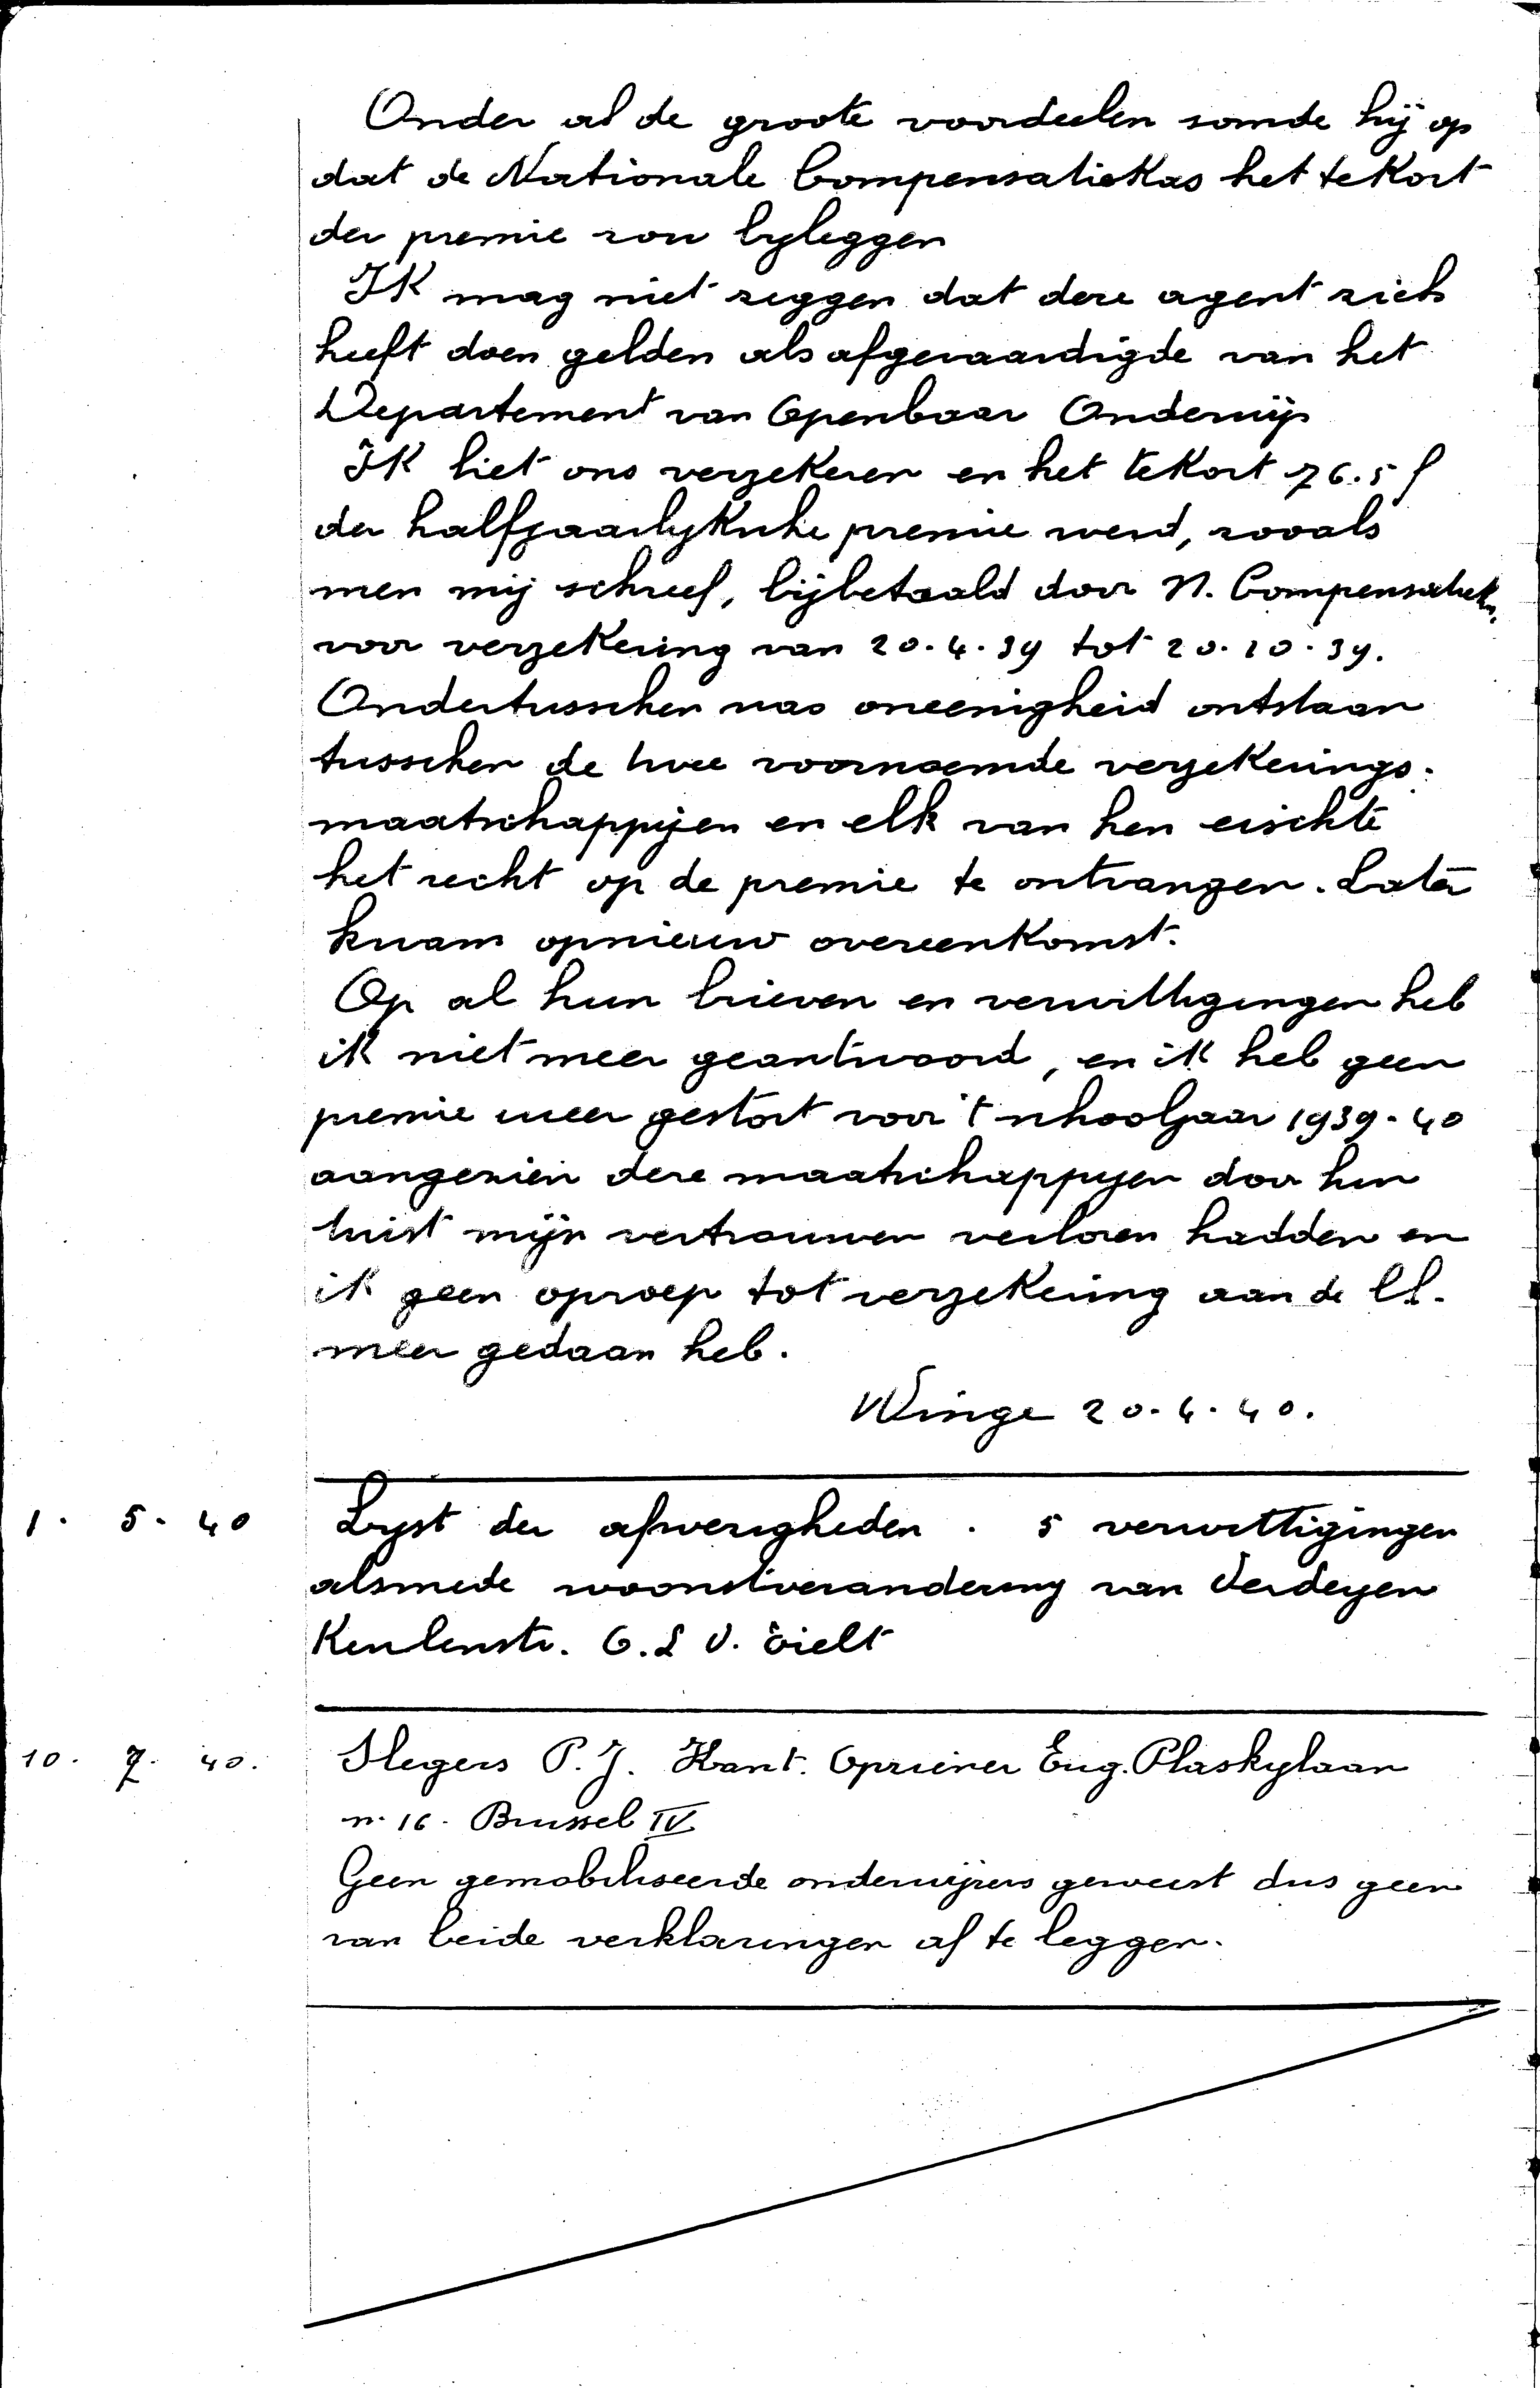 Onder al de groote voordeelen somde hij op
dat de Nationale Compensatiekas het tekort
der premie zou byleggen
Ik mag niet zeggen dat deze agent zich
heeft doen gelden als afgevaardigde van het
Departement van Openbaar Onderwijs
Ik liet ons verzekeren en het tekort 76.5 f
der halfjaarlyksche premie werd, zooals
men mij schreef, bijbetaald door N. Compensatiek.
voor verzekering van 20.4.39 tot 20.10.39.
Ondertusschen was oneenigheid ontstaan
tusschen de twee voornoemde verzekerings-
maatschappijen en elk van hen eischte
het recht op de premie te ontvangen. Later
kwam opnieuw overeenkomst.
Op al hun brieven en verwittigingen heb
ik niet meer geantwoord, en ik heb geen
premie meer gestort voor 't schooljaar 1939-40
aangezien deze maatschappyen door hun
twist mijn vertrouwen verloren hadden en
ik geen oproep tot verzekering aan de ll.
meer gedaan heb.
Winge 20.4.40.
1. 5. 40 Lyst der afwezigheden. 5 verwittigingen
alsmede woonstverandering van Verdeyen
Keulenstr. O.L.V. Tielt
10. 7. 40. Slegers P.J. Kant. Opziener Eug. Plaskylaan
nr 16. Brussel IV
Geen gemobiliseerde onderwijzers geweest dus geen
van beide verklaringen af te leggen.